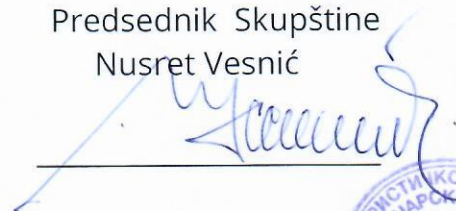 Predsednik Skupštine
Nusret Vesnić